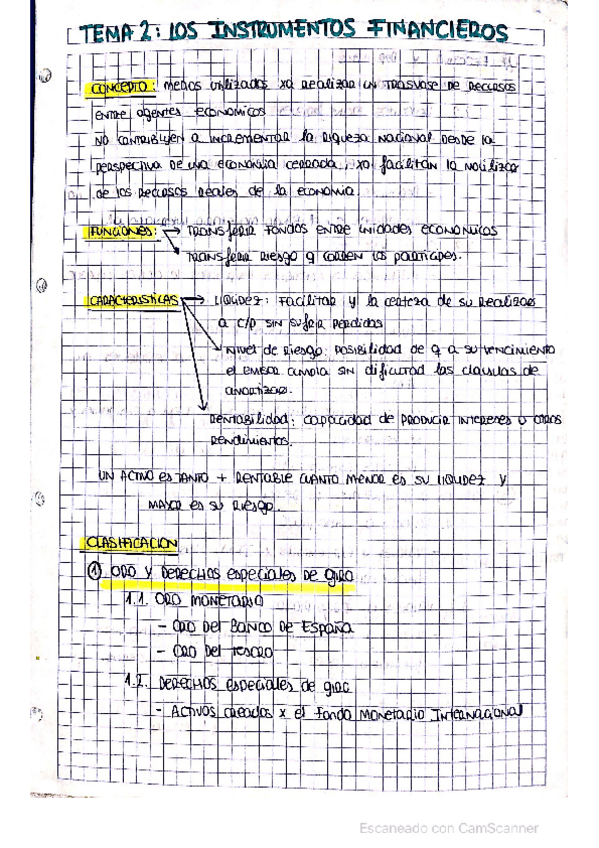 TEMA 2: LOS INSTRUMENTOS FINANCIEROS
CONCEPTO: medios utilizados xa realizar un trasvase de recursos
entre agentes economicos
no contribuyen a incrementar la riqueza nacional desde la
perspectiva de una economia cerrada, xo facilitan la moviliza
de los recursos reales de la economia.
FUNCIONES: → TRANSFERIR FONDOS ENTRE UNIDADES ECONOMICOS
→ TRANSFERIR RIESGO q CORREN LOS PARTICIPES.
CARACTERISTICAS → LIQUIDEZ: FACILITAR y la certeza de su Realizar
a c/p sin sufrir perdidas
Nivel de Riesgo: posibilidad de q a su vencimiento
el emisor cumpla sin dificultad las clausulas de
amortizac.
RENTABILIDAD: capacidad de PRODUCIR INTERESES U OTROS
Rendimientos.
UN ACTIVO es TANTO + RENTABLE CUANTO MENOR es su LIQUIDEZ y
MAYOR es su RIESGO.
CLASIFICACION
① ORO Y DERECHOS especiales DE GIRO
1.1. ORO MONETARIO
- ORO Del BANCO DE ESPAÑA
- ORO Del TESORO
1.2. DERECHOS especiales de giro
- ACTIVOS creados x el Fondo Monetario Internacional
Escaneado con CamScanner